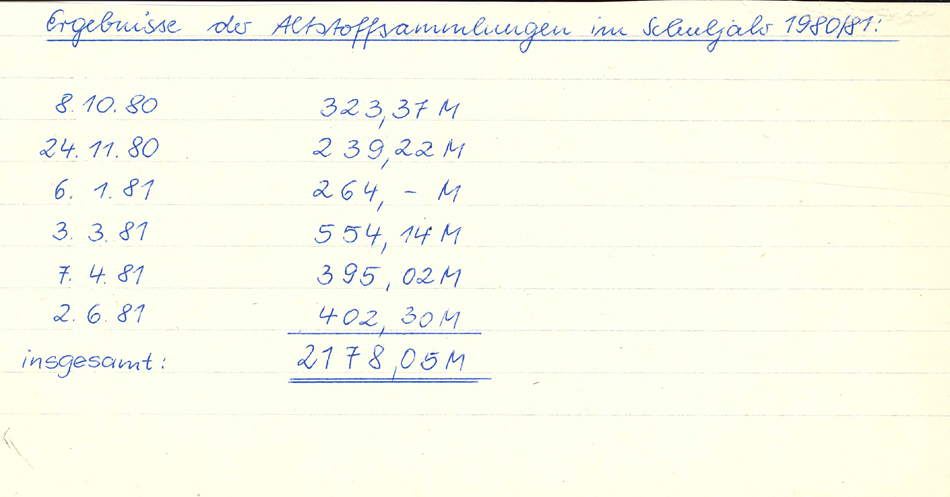 Ergebnisse der Altstoffsammlungen im Schuljahr 1980/81:
8.10.80 323,37 M
24.11.80 239,22 M
6. 1. 81 264,- M
3. 3. 81 554,14 M
7. 4. 81 395,02 M
2. 6. 81 402,30 M
insgesamt: 2178,05 M